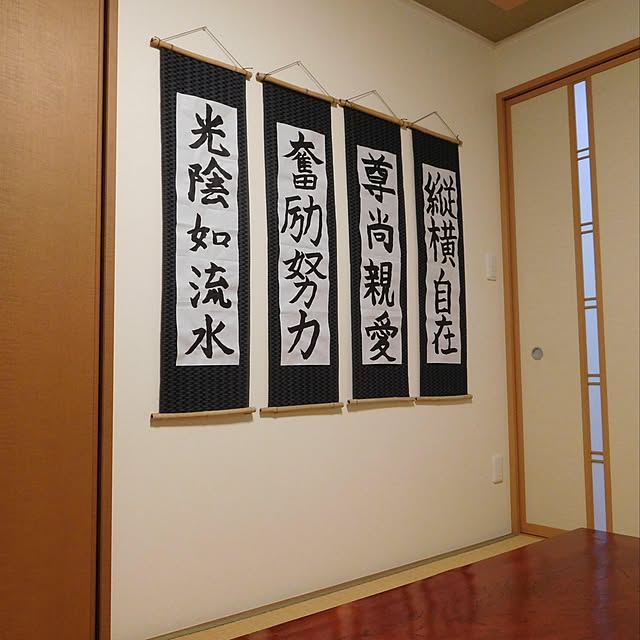 光陰如流水
奮励努力
尊尚親愛
縦横自在